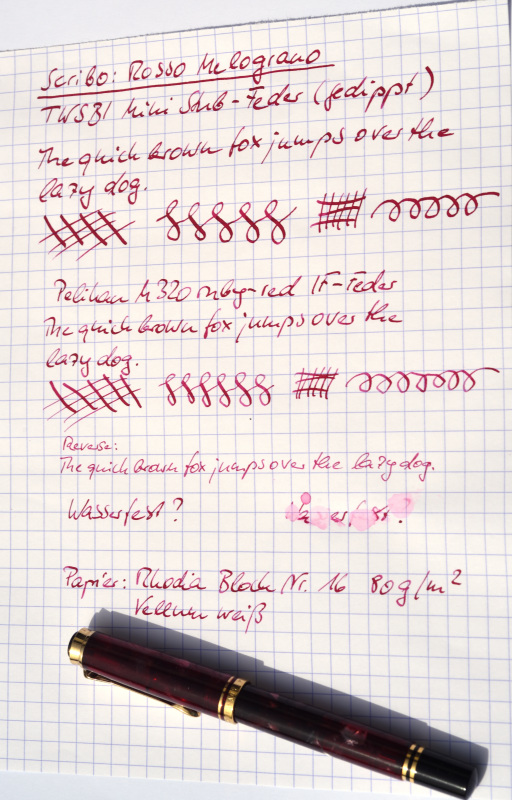 Scribo: Rosso Melograno
TWSBI Mini Stub-Feder (gedippt)
The quick brown fox jumps over the
lazy dog.
Pelikan M320 ruby-red IF-Feder
The quick brown fox jumps over the
lazy dog.
Reverse:
The quick brown fox jumps over the lazy dog.
Wasserfest? Wasserfest?
Papier: Rhodia Block Nr. 16 80g/m²
Vellum weiß